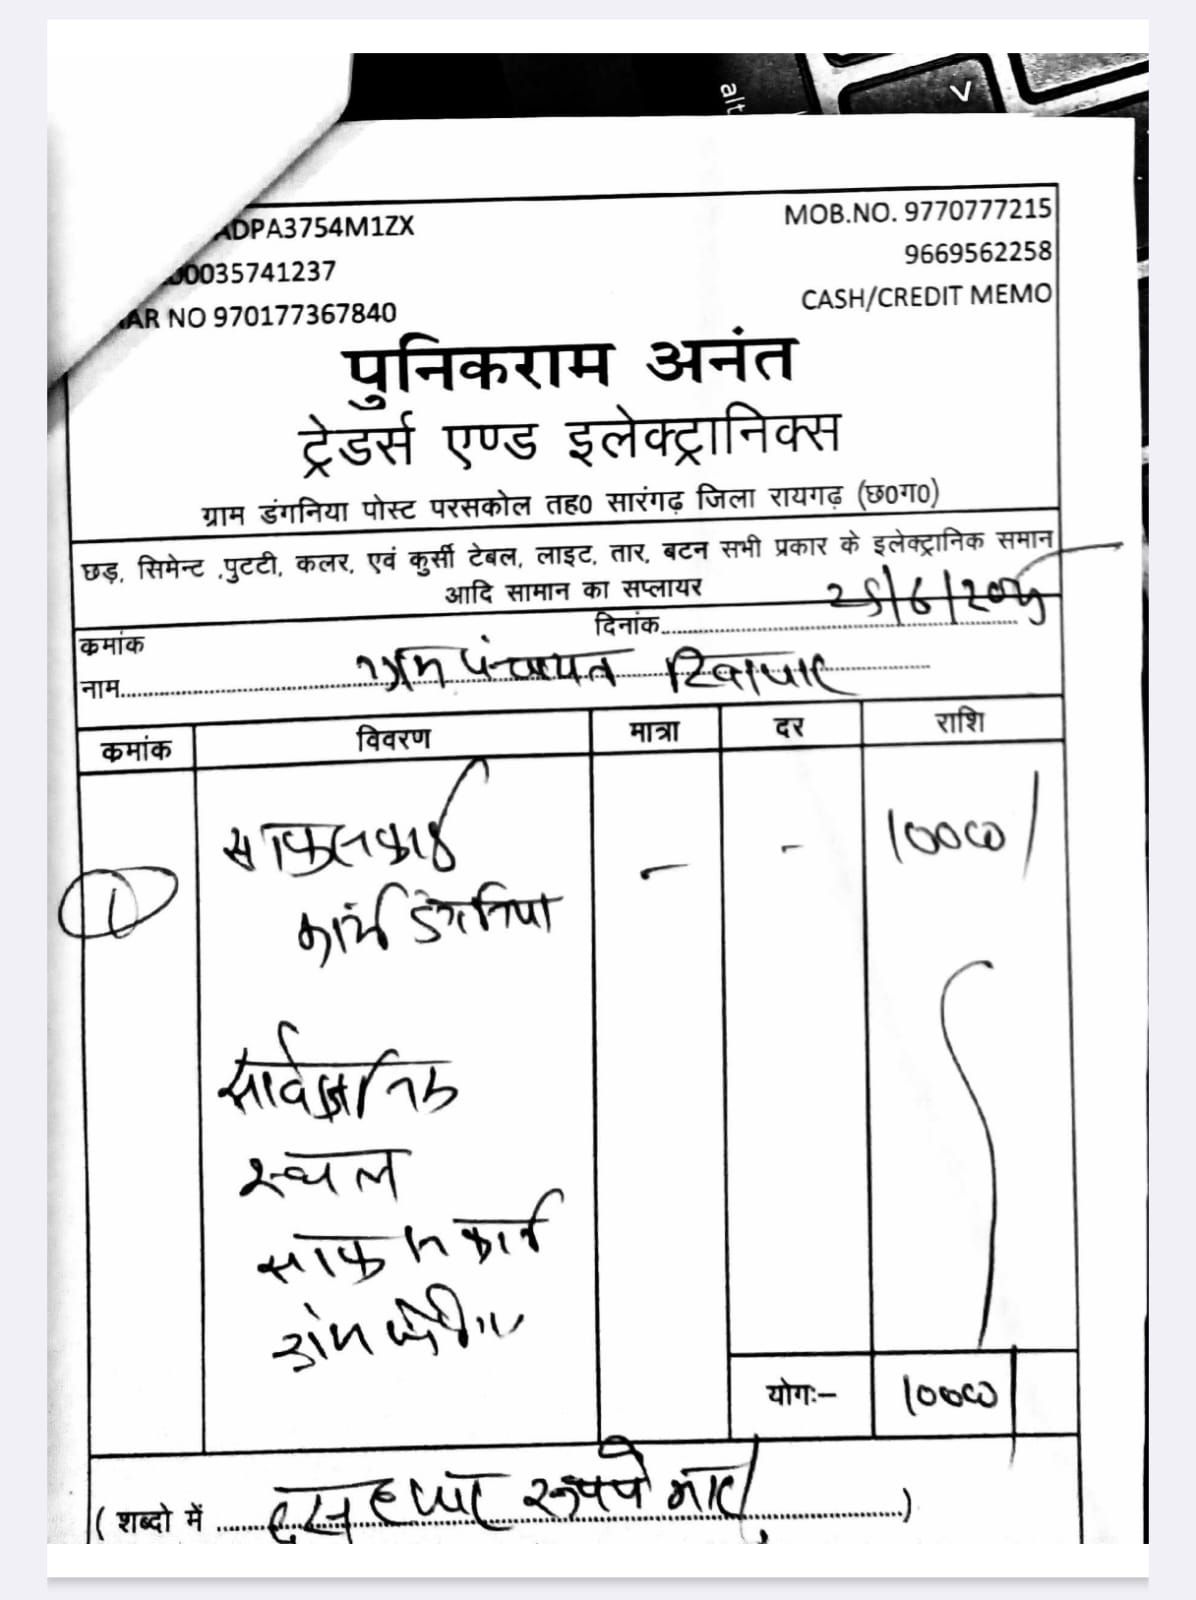 alt
V
ADPA3754M1ZX
MOB.NO. 9770777215
00035741237
9669562258
AR NO 970177367840
CASH/CREDIT MEMO
पुनिकराम अनंत
ट्रेडर्स एण्ड इलेक्ट्रानिक्स
ग्राम डंगनिया पोस्ट परसकोल तह0 सारंगढ़ जिला रायगढ़ (छ0ग0)
छड़, सिमेन्ट ,पुटटी, कलर, एवं कुर्सी टेबल, लाइट, तार, बटन सभी प्रकार के इलेक्ट्रानिक समान
आदि सामान का सप्लायर
कमांक
दिनांक
नाम ग्राम पंचायत
कमांक विवरण मात्रा दर राशि
1 - - 10000/
कार्य डंगनिया
सार्वजनिक
स्थल
योगः– 10000/
( शब्दो में दस हजार रूपये मात्र )